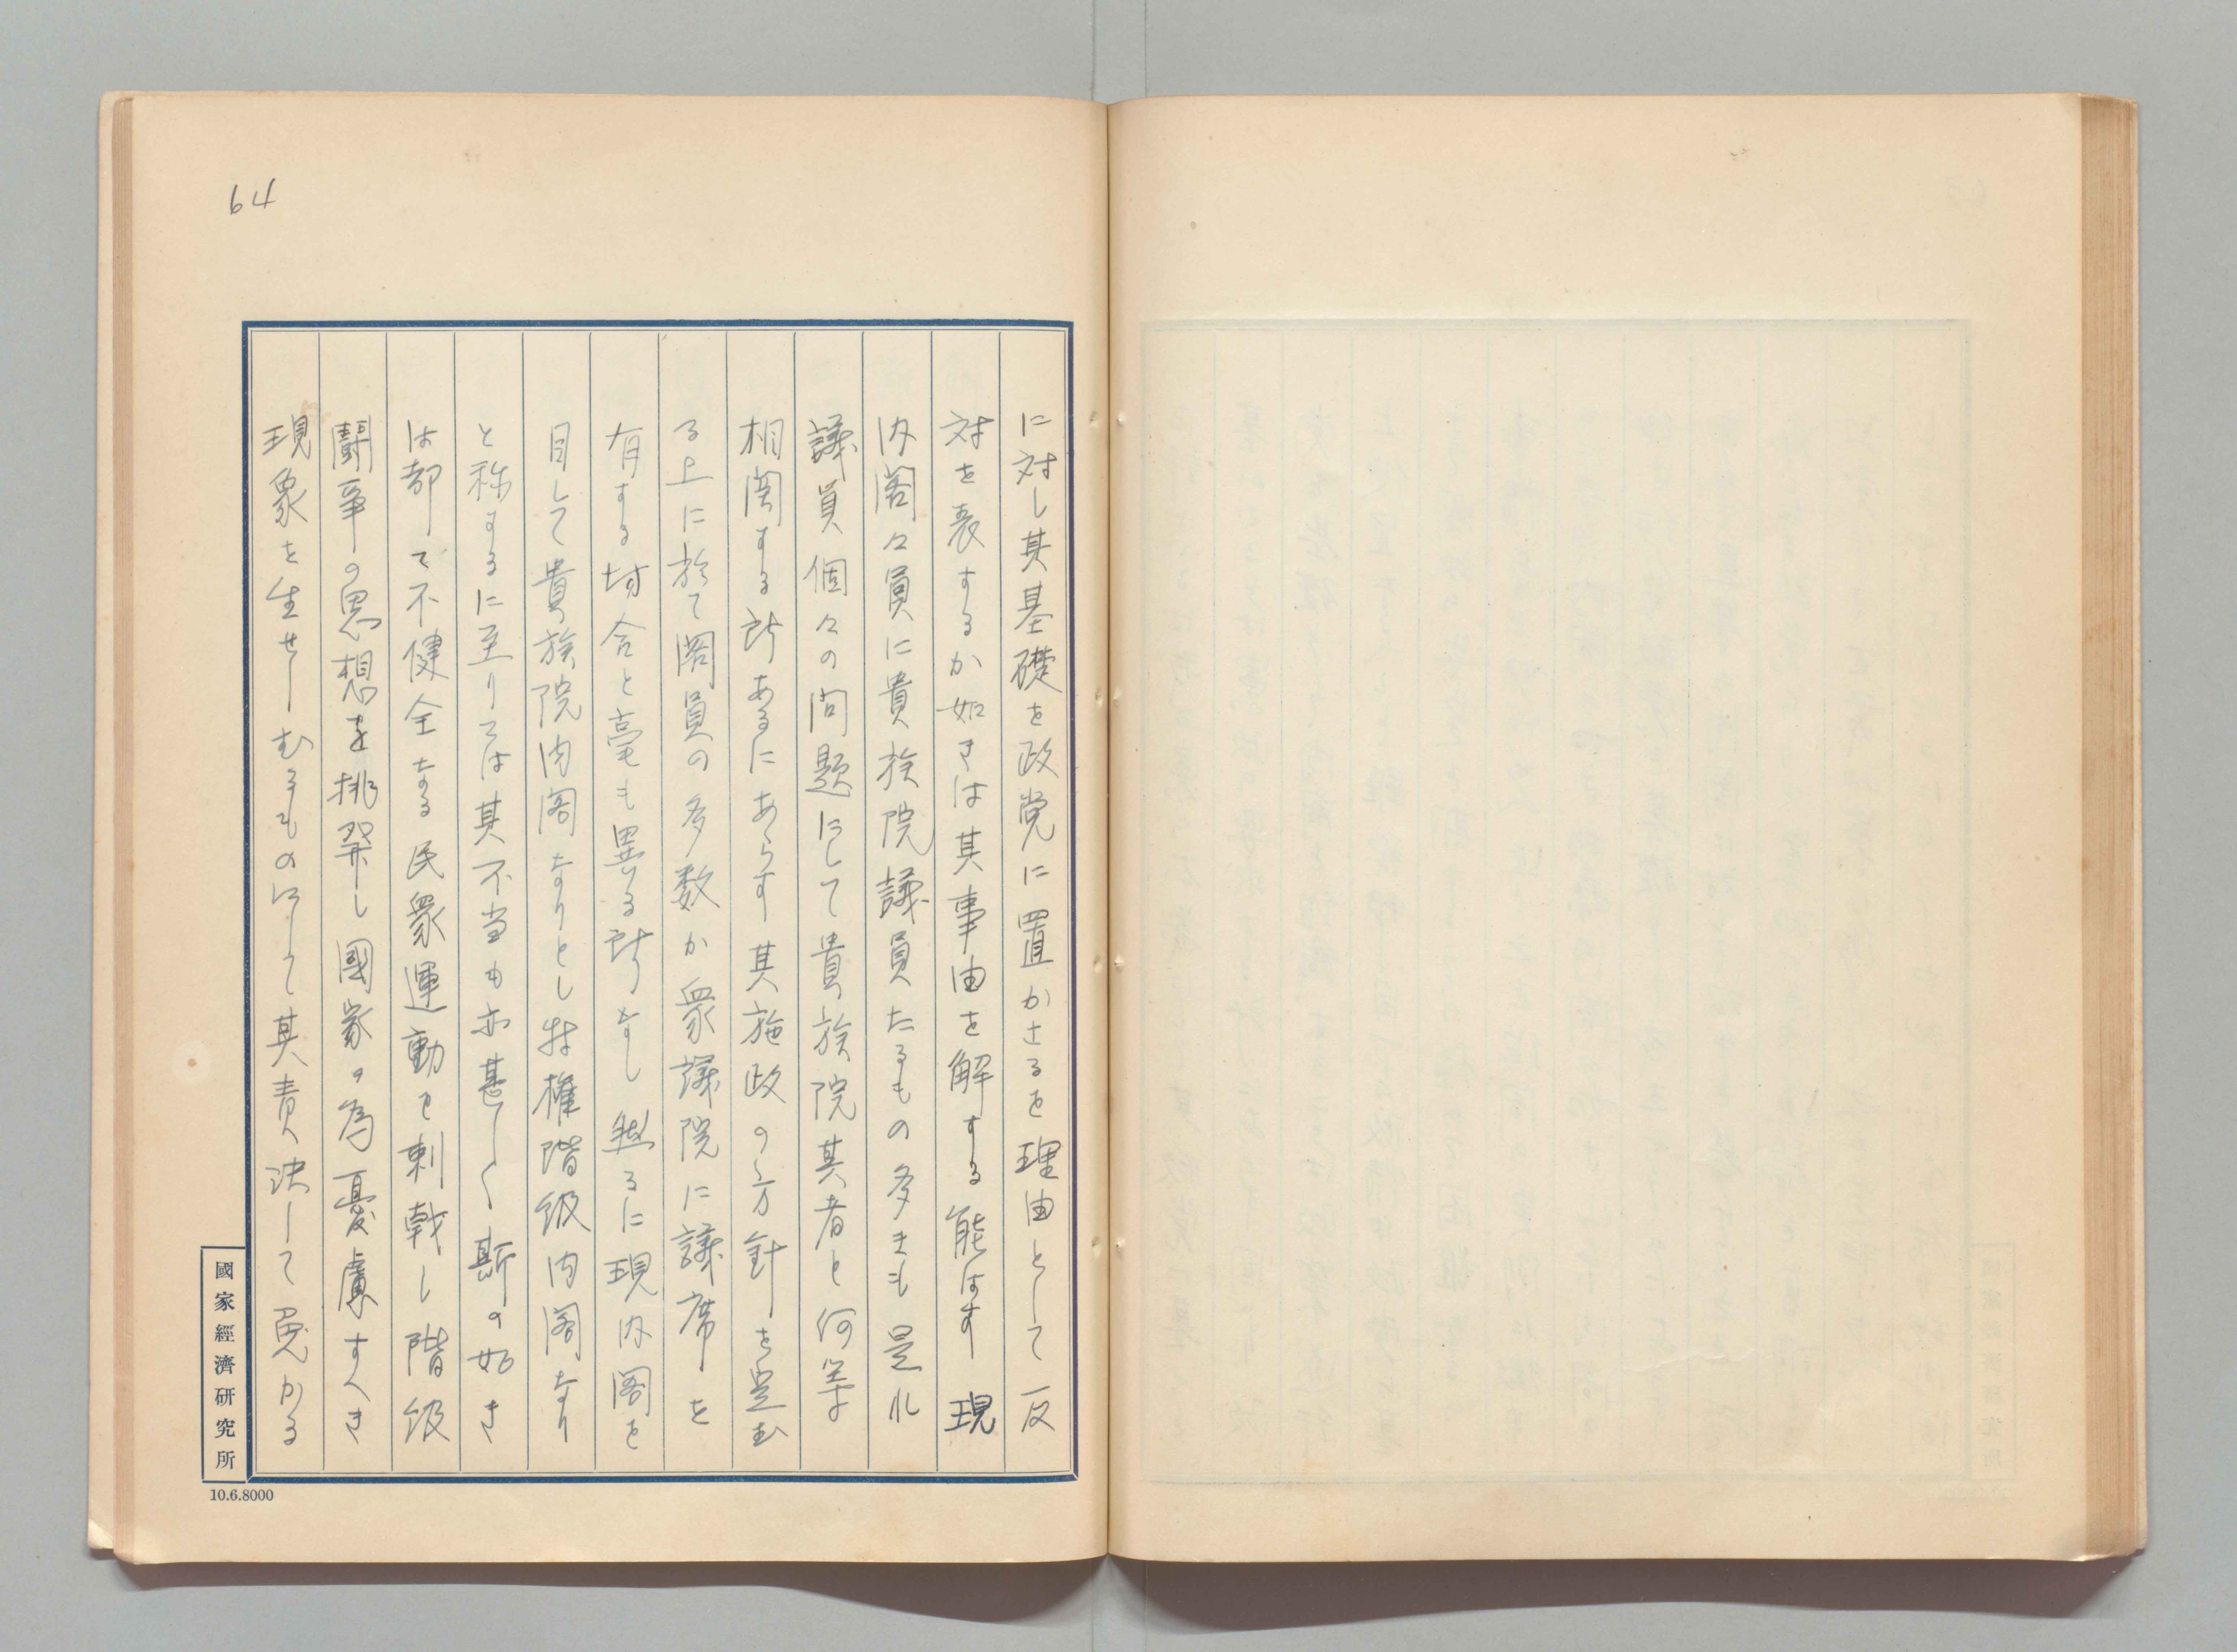 64
に対し其基礎を政党に置かさるを理由として反
対を表するか如きは其事由を解する能はす現
内閣々員に貴族院議員たるもの多きも是れ
議員個々の問題にして貴族院其者と何等
相関する所あるにあらす其施政の方針を定む
る上に於て閣員の多数か衆議院に議席を
有する場合と毫も異る所なし然るに現内閣を
目して貴族院内閣なりとし特権階級内閣なり
と称するに至りては其不当も亦甚しく斯の如き
は却て不健全なる民衆運動を刺戟し階級
闘爭の思想を挑発し國家の為憂慮すへき
現象を生せしむるものにして其責決して免かる
國家經濟研究所
10.6.8000